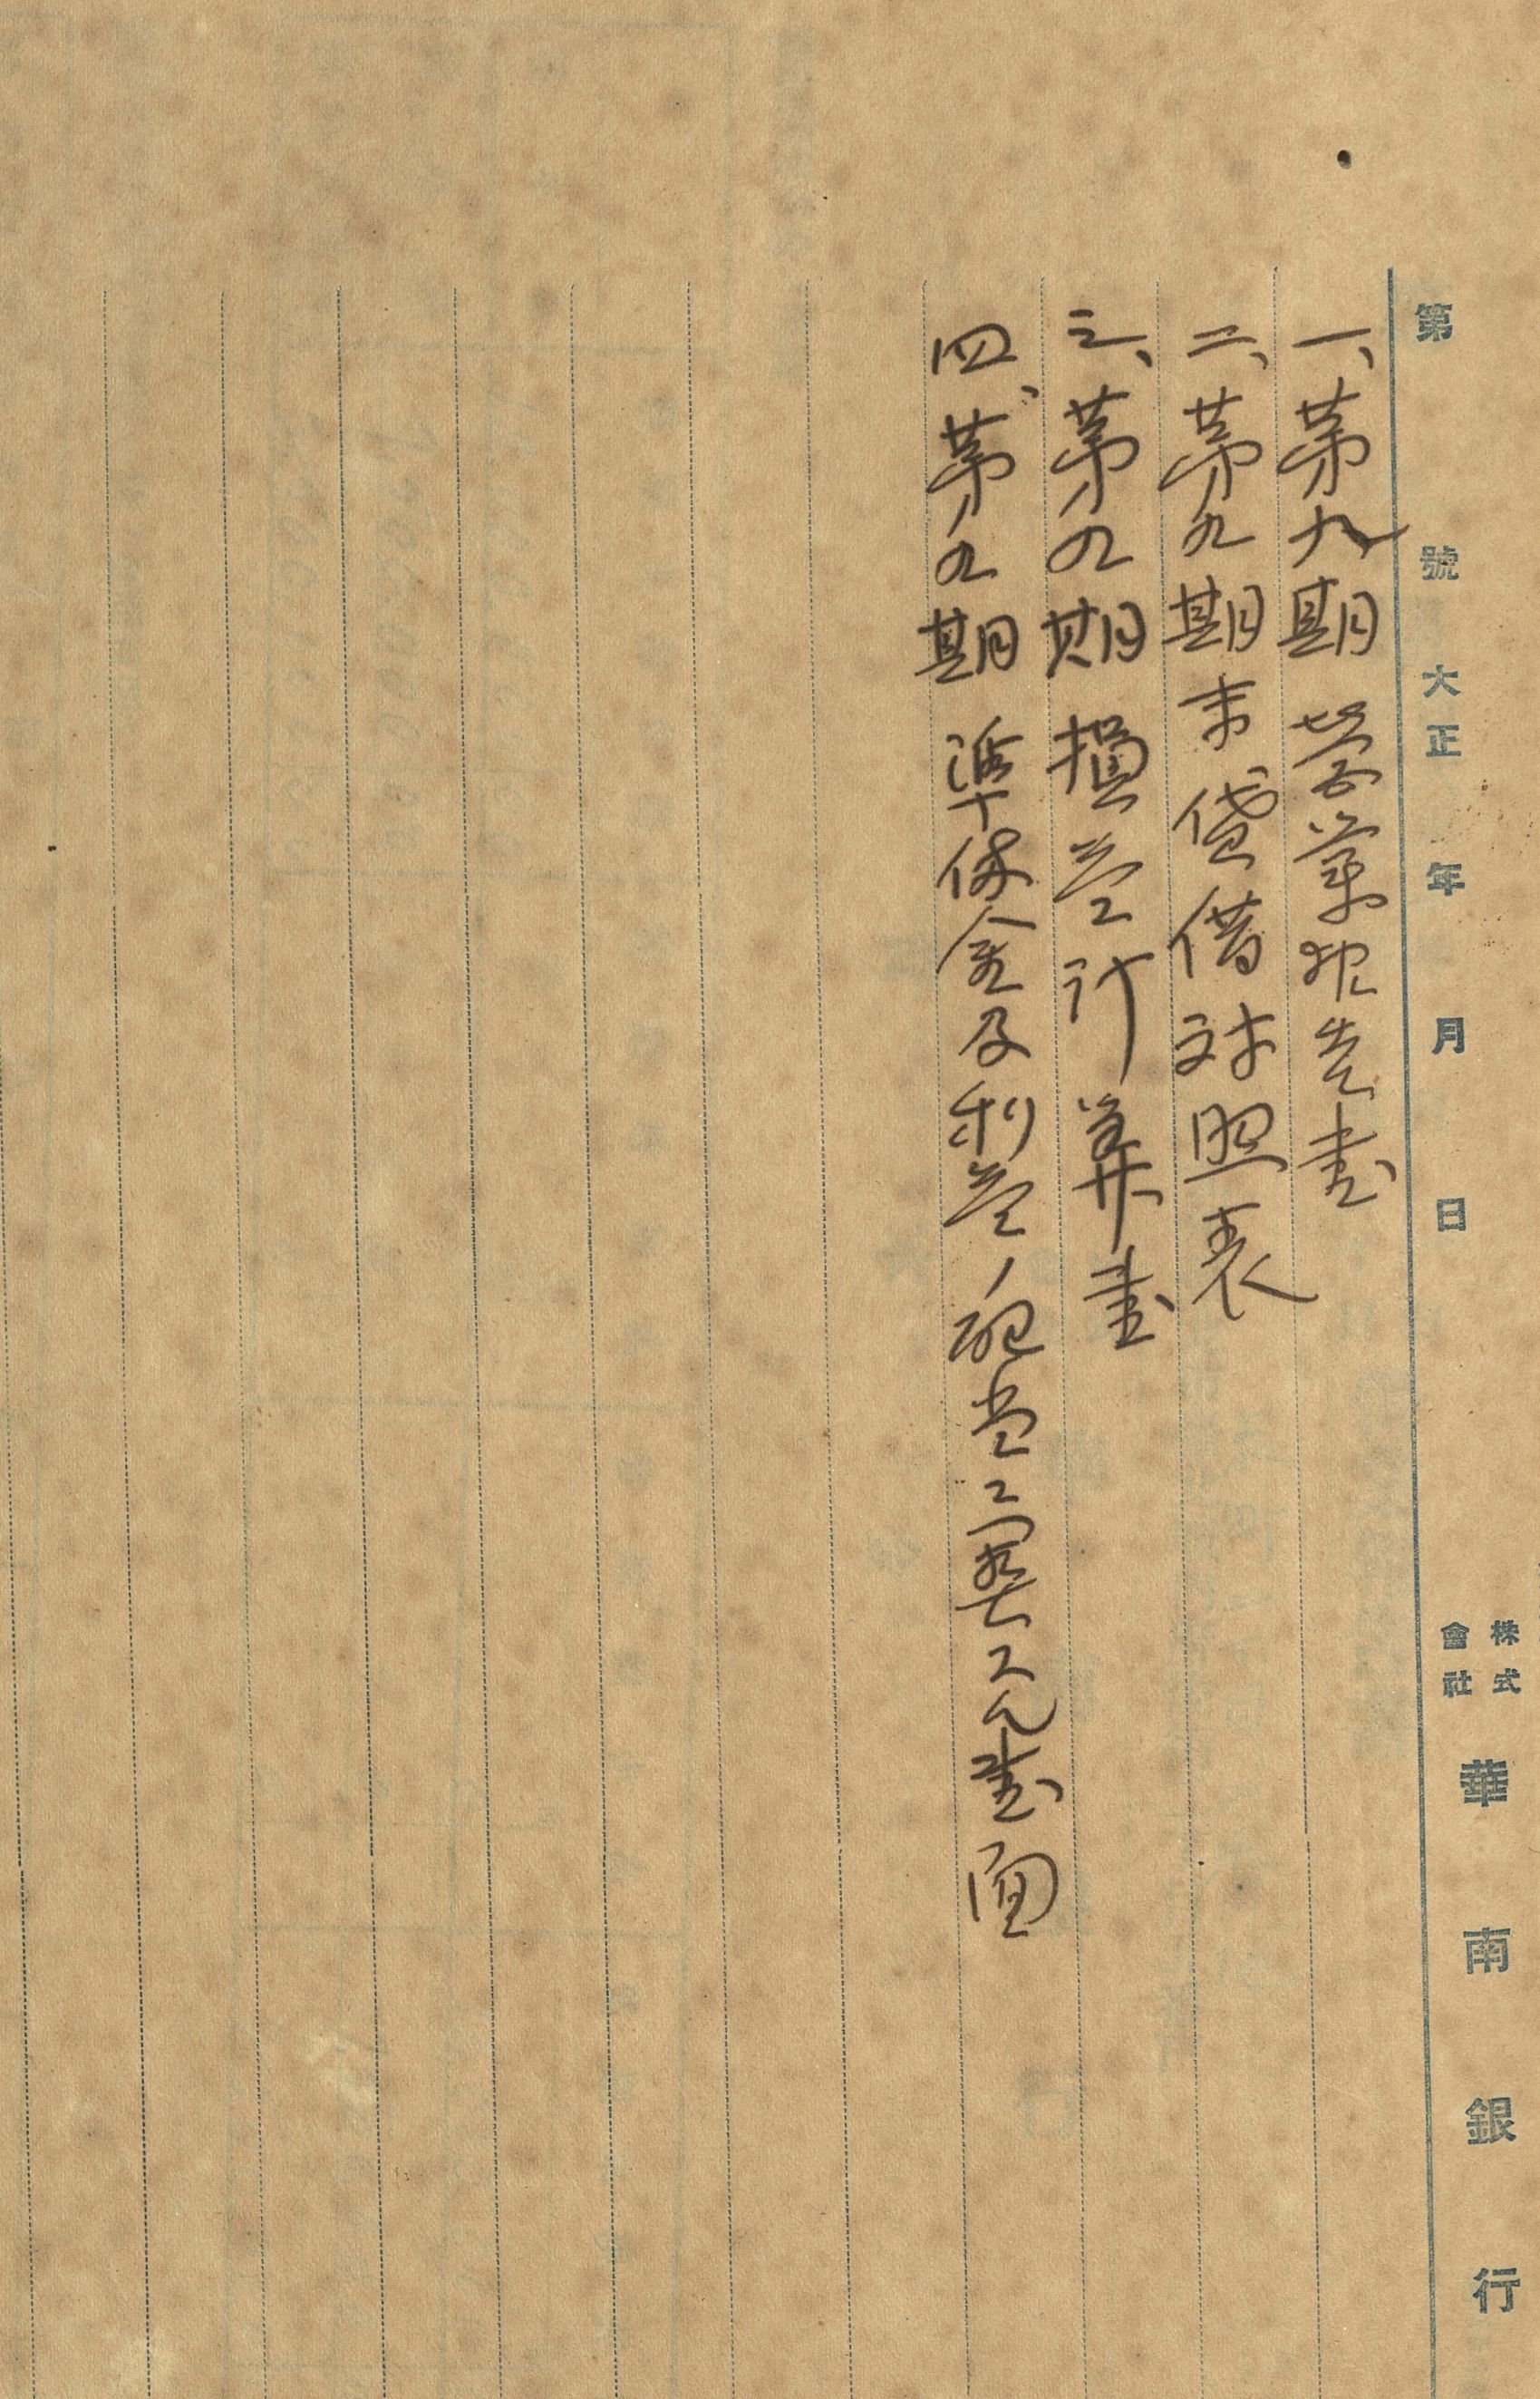 第　號　大正　年　月　日　株式會社　華南銀行
一、第九期営業報告書
二、第九期末貸借対照表
三、第九期損益計算書
四、第九期準備金及利益ノ配当ニ関スル書面